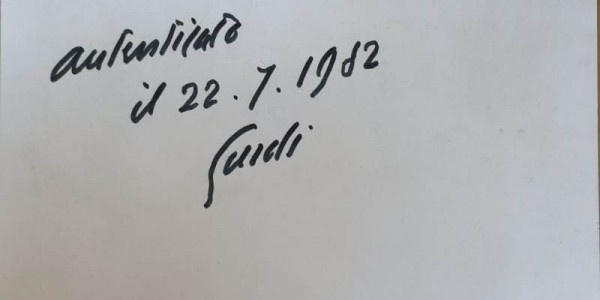 autenticato
il 22.7.1982
Guidi